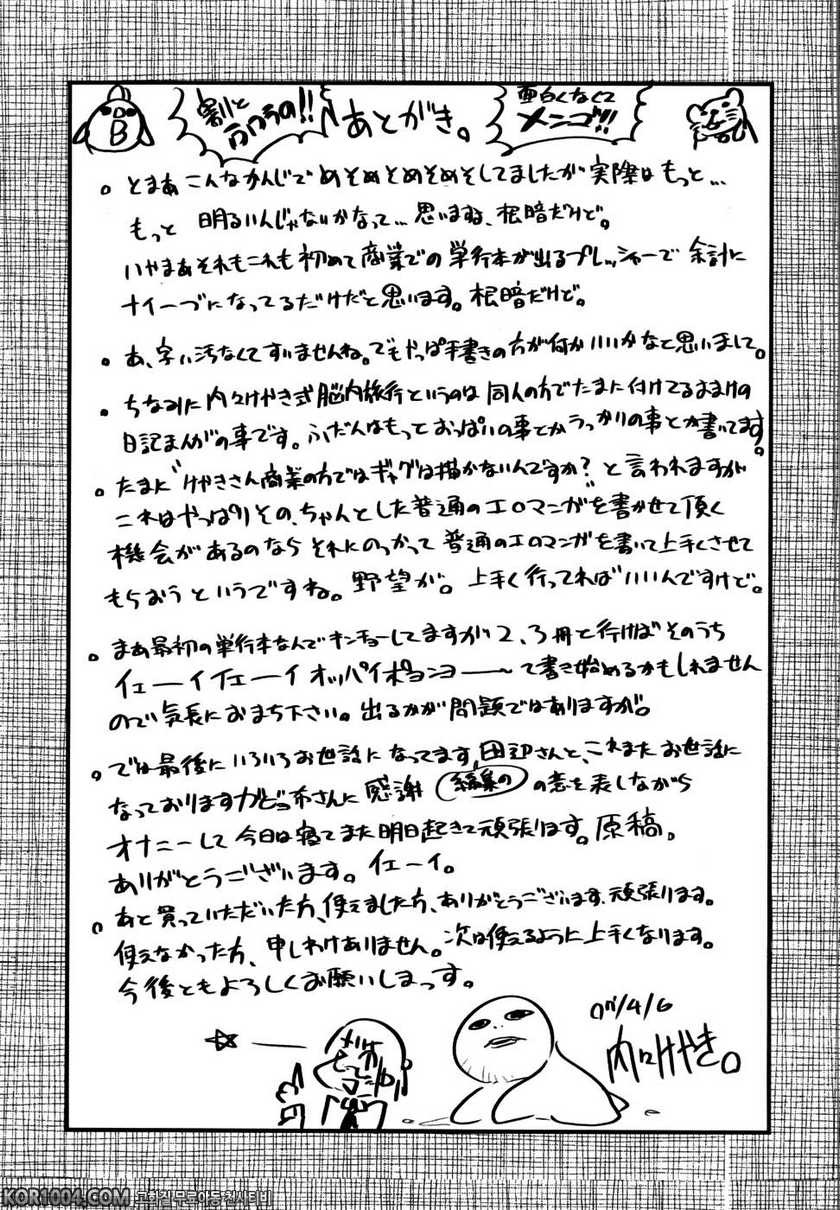 割と
あとがき。
面白くなくて
メンゴ!!!
とまあこんなかんじでめそめそめそめそしてましたが実際はもっと…
もっと 明るいんじゃないかなって…思いますね、根暗だけど。
いやまあそれもこれも初めて商業での単行本が出るプレッシャーで 余計に
ナイーブになってるだけだと思います。根暗だけど。
あ、字い汚なくてすいませんね。でもやっぱ手書きの方が何かいいかなと思いまして。
ちなみに内々けやき式脳内旅行というのは同人の方でたまに付けてるおまけの
日記まんがの事です。ふだんはもっとおっぱいの事とかうっかりの事とか書いてます。
たまに"けやきさん商業の方ではギャグは描かないんですか?"と言われますが
これはやっぱりその、ちゃんとした普通のエロマンガを書かせて頂く
機会があるのならそれにのっかって普通のエロマンガを書いて上手くさせて
もらおうというですね。野望が。上手く行ってればいいんですけど。
まあ最初の単行本なんでキンチョーしてますが2、3冊と行けばそのうち
イェーイイェーイ オッパイポヨンヨーーー〜て書き始めるかもしれません
ので気長におまち下さい。出るかが問題ではありますが。
では最後にいろいろお世話になってます、田辺さんと、これまたお世話に
なっております さんに感謝 編集の の意を表しながら
オナニーして今日は寝てまた明日起きて頑張ります。原稿。
ありがとうございます。イェーイ。
あと買っていただいた方、使えました方、ありがとうございます、頑張ります。
使えなかった方、申しわけありません。次は使えるように上手くなります。
今後ともよろしくお願いしまっす。
07/4/6
内々けやき。
KOR1004.COM